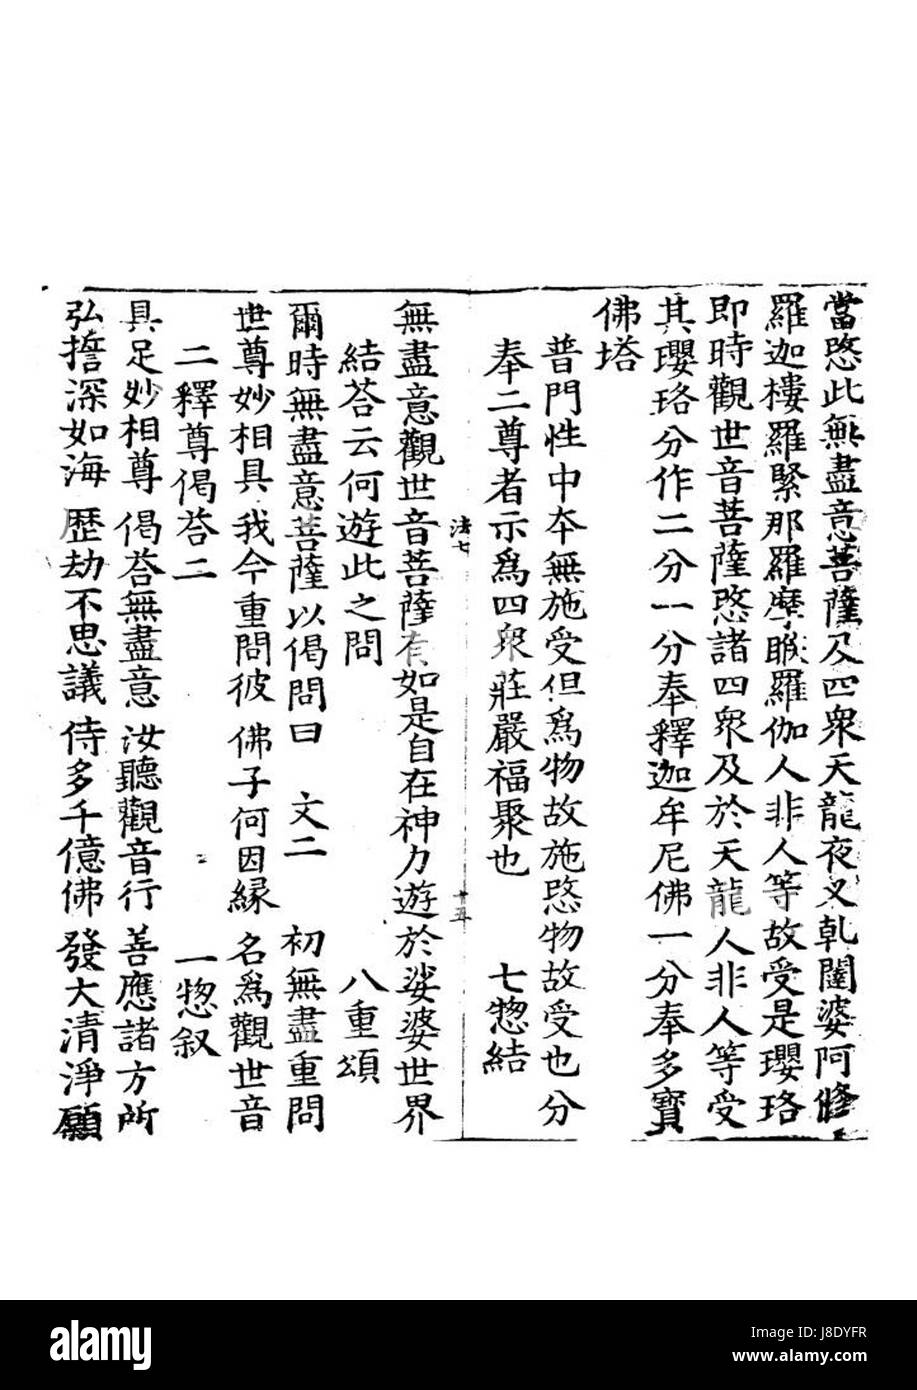 當愍此無盡意菩薩及四衆天龍夜叉乹闥婆阿脩
羅迦樓羅緊那羅摩睺羅伽人非人等故受是瓔珞
即時觀世音菩薩愍諸四衆及於天龍人非人等受
其瓔珞分作二分一分奉釋迦牟尼佛一分奉多寶
佛塔
普門性中夲無施受但爲物故施愍物故受也分
奉二尊者示爲四衆莊嚴福聚也 七惣結
法七 十五
無盡意觀世音菩薩有如是自在神力遊於娑婆世界
結荅云何遊此之問 八重頌
爾時無盡意菩薩以偈問曰 文二 初無盡重問
世尊妙相具 我今重問彼 佛子何因縁 名爲觀世音
二釋尊偈荅二 一惣叙
具足妙相尊 偈荅無盡意 汝聽觀音行 善應諸方所
弘誓深如海 歴劫不思議 侍多千億佛 發大清淨願
alamy
Image ID: J8DYFR
www.alamy.com